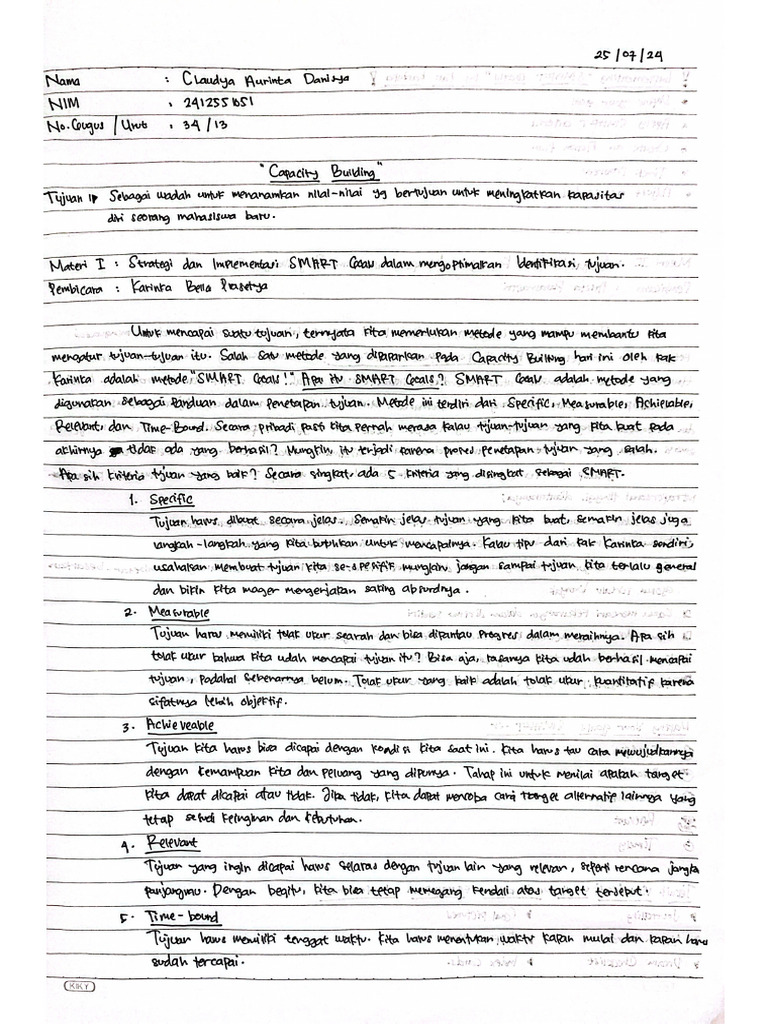 25/07/24
Nama : Claudya Aurinta Danisya
NIM : 241255651
No. Gugus / Urut : 34 / 13
"Capacity Building"
Tujuan : Sebagai wadah untuk menanamkan nilai-nilai yg bertujuan untuk meningkatkan kapasitas
diri seorang mahasiswa baru.
Materi I : Strategi dan Implementasi SMART Goals dalam mengoptimalkan Identifikasi tujuan.
Pembicara : Karinka Bella Prasetya
Untuk mencapai suatu tujuan, ternyata kita memerlukan metode yang mampu membantu kita
mengatur tujuan-tujuan itu. Salah satu metode yang dipaparkan pada Capacity Building hari ini oleh kak
Karinka adalah metode "SMART Goals!" Apa itu SMART Goals? SMART Goals adalah metode yang
digunakan sebagai panduan dalam penetapan tujuan. Metode ini terdiri dari Specific, Measurable, Achievable,
Relevant, dan Time-Bound. Secara pribadi pasti kita pernah merasa kalau tujuan-tujuan yang kita buat pada
akhirnya tidak ada yang berhasil? Mungkin, itu terjadi karena proses penetapan tujuan yang salah.
Apa sih kriteria tujuan yang baik? Secara singkat, ada 5 kriteria yang disingkat sebagai SMART.
1. Specific
Tujuan harus dibuat secara jelas. Semakin jelas tujuan yang kita buat, semakin jelas juga
langkah-langkah yang kita butuhkan untuk mencapainya. Kalau tips dari kak Karinka sendiri,
usahakan membuat tujuan kita se-spesifik mungkin, jangan sampai tujuan kita terlalu general
dan bikin kita mager mengerjakan saking absurdnya.
2. Measurable
Tujuan harus memiliki tolak ukur searah dan bisa dipantau progres dalam meraihnya. Apa sih
tolak ukur bahwa kita udah mencapai tujuan itu? Bisa aja, rasanya kita udah berhasil mencapai
tujuan, padahal sebenarnya belum. Tolak ukur yang baik adalah tolak ukur kuantitatif karena
sifatnya lebih objektif.
3. Achieveable
Tujuan kita harus bisa dicapai dengan kondisi kita saat ini. Kita harus tau cara mewujudkannya
dengan kemampuan kita dan peluang yang dipunya. Tahap ini untuk menilai apakah target
kita dapat dicapai atau tidak. Jika tidak, kita dapat mencoba cara target alternatif lainnya yang
tetap sesuai keinginan dan kebutuhan.
4. Relevant
Tujuan yang ingin dicapai harus selaras dengan tujuan lain yang relevan, seperti rencana jangka
panjangmu. Dengan begitu, kita bisa tetap memegang kendali atas target tersebut.
5. Time-bound
Tujuan harus memiliki tenggat waktu. Kita harus menentukan waktu kapan mulai dan kapan harus
sudah tercapai.
KIKY